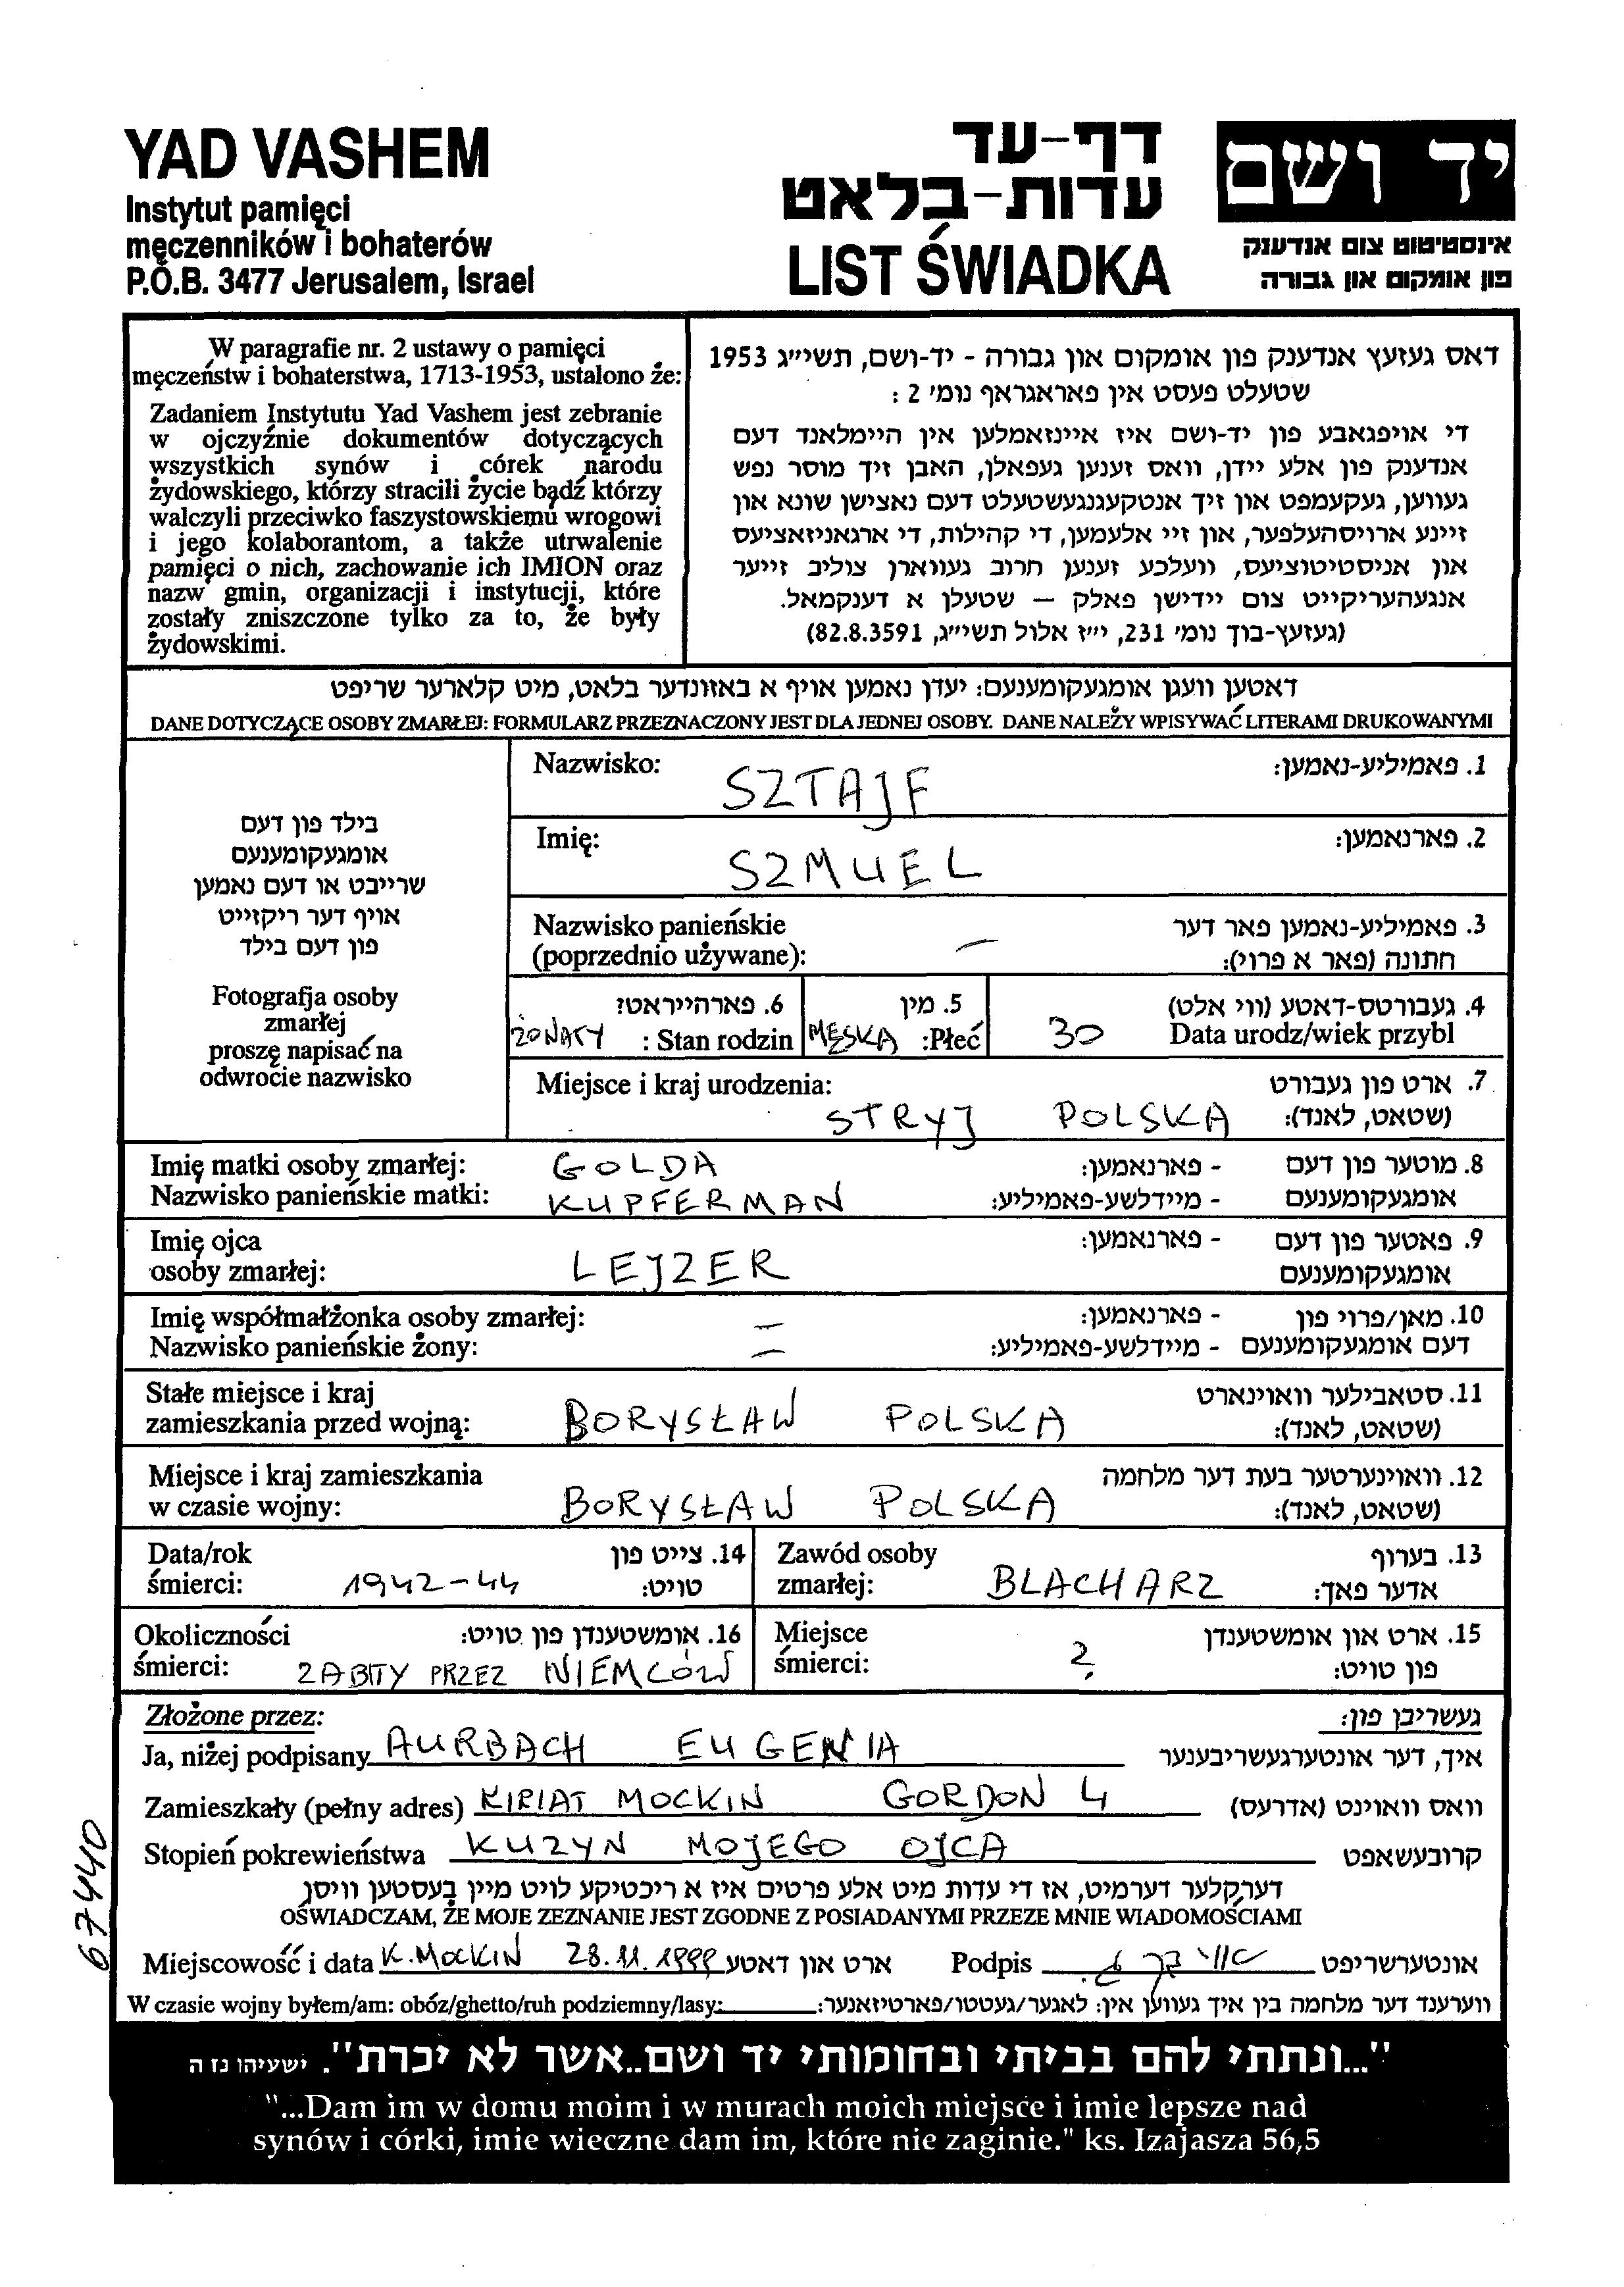 YAD VASHEM
Instytut pamięci
męczenników i bohaterów
P.O.B. 3477 Jerusalem, Israel
דף-עד
עדות-בלאט
LIST ŚWIADKA
יד ושם
אינסטיטוט צום אנדענק
פון אומקום און גבורה
W paragrafie nr. 2 ustawy o pamięci
męczeństw i bohaterstwa, 1713-1953, ustalono że:
Zadaniem Instytutu Yad Vashem jest zebranie
w ojczyźnie dokumentów dotyczących
wszystkich synów i córek narodu
żydowskiego, którzy stracili życie bądź którzy
walczyli przeciwko faszystowskiemu wrogowi
i jego kolaborantom, a także utrwalenie
pamięci o nich, zachowanie ich IMION oraz
nazw gmin, organizacji i instytucji, które
zostały zniszczone tylko za to, że były
żydowskimi.
דאס געזעץ אנדענק פון אומקום און גבורה - יד-ושם, תשי״ג 1953
שטעלט פעסט אין פאראגראף נומ׳ 2 :
די אויפגאבע פון יד-ושם איז איינזאמלען אין היימלאנד דעם
אנדענק פון אלע יידן, וואס זענען געפאלן, האבן זיך מוסר נפש
געווען, געקעמפט און זיך אנטקעגנגעשטעלט דעם נאצישן שונא און
זיינע ארויסהעלפער, און זיי אלעמען, די קהילות, די ארגאניזאציעס
און אניסטיטוציעס, וועלכע זענען חרוב געווארן צוליב זייער
אנגעהעריקייט צום יידישן פאלק – שטעלן א דענקמאל.
(געזעץ-בוך נומ׳ 231, י״ז אלול תשי״ג, 82.8.3591)
דאטען וועגן אומגעקומענעם: יעדן נאמען אויף א באזונדער בלאט, מיט קלארער שריפט
DANE DOTYCZĄCE OSOBY ZMARŁEJ: FORMULARZ PRZEZNACZONY JEST DLA JEDNEJ OSOBY. DANE NALEŻY WPISYWAĆ LITERAMI DRUKOWANYMI
בילד פון דעם
אומגעקומענעם
שרייבט או דעם נאמען
אויף דער ריקזייט
פון דעם בילד
Fotografja osoby
zmarłej
proszę napisać na
odwrocie nazwisko
Nazwisko: SZTAJF 1. פאמיליע-נאמען:
Imię: SZMUEL 2. פארנאמען:
Nazwisko panieńskie 3. פאמיליע-נאמען פאר דער
(poprzednio używane): — חתונה (פאר א פרוי):
6. פארהייראט? 5. מין 4. געבורטס-דאטע (ווי אלט)
ŻONATY : Stan rodzin MĘSKA :Płeć 30 Data urodz/wiek przybl
Miejsce i kraj urodzenia: 7. ארט פון געבורט
STRYJ POLSKA (שטאט, לאנד):
Imię matki osoby zmarłej: GOLDA - פארנאמען: 8. מוטער פון דעם
Nazwisko panieńskie matki: KUPFERMAN - מיידלשע-פאמיליע: אומגעקומענעם
Imię ojca - פארנאמען: 9. פאטער פון דעם
osoby zmarłej: LEJZER אומגעקומענעם
Imię współmałżonka osoby zmarłej: — - פארנאמען: 10. מאן/פרוי פון
Nazwisko panieńskie żony: — - מיידלשע-פאמיליע: דעם אומגעקומענעם
Stałe miejsce i kraj 11. סטאבילער וואוינארט
zamieszkania przed wojną: BORYSŁAW POLSKA (שטאט, לאנד):
Miejsce i kraj zamieszkania 12. וואוינערטער בעת דער מלחמה
w czasie wojny: BORYSŁAW POLSKA (שטאט, לאנד):
Data/rok 14. צייט פון Zawód osoby 13. בערוף
śmierci: 1942-44 טויט: zmarłej: BLACHARZ אדער פאך:
Okoliczności 16. אומשטענדן פון טויט: Miejsce 15. ארט און אומשטענדן
śmierci: ZABITY PRZEZ NIEMCÓW śmierci: ? פון טויט:
Złożone przez: געשריבן פון:
Ja, niżej podpisany AURBACH EUGENIA איך, דער אונטערגעשריבענער
Zamieszkały (pełny adres) KIRIAT MOCKIN GORDON 4 וואס וואוינט (אדרעס)
Stopień pokrewieństwa KUZYN MOJEGO OJCA קרובעשאפט
דערקלער דערמיט, אז די עדות מיט אלע פרטים איז א ריכטיקע לויט מיין בעסטען וויסן
OŚWIADCZAM, ŻE MOJE ZEZNANIE JEST ZGODNE Z POSIADANYMI PRZEZE MNIE WIADOMOŚCIAMI
Miejscowość i data K. MOCKIN 28.11.1999 ארט און דאטע Podpis אונטערשריפט
W czasie wojny byłem/am: obóz/ghetto/ruh podziemny/lasy: ווערענד דער מלחמה בין איך געווען אין: לאגער/געטטו/פארטיזאנער:
67440
"...ונתתי להם בביתי ובחומותי יד ושם..אשר לא יכרת". ישעיהו נז ה
"...Dam im w domu moim i w murach moich miejsce i imie lepsze nad
synów i córki, imie wieczne dam im, które nie zaginie." ks. Izajasza 56,5